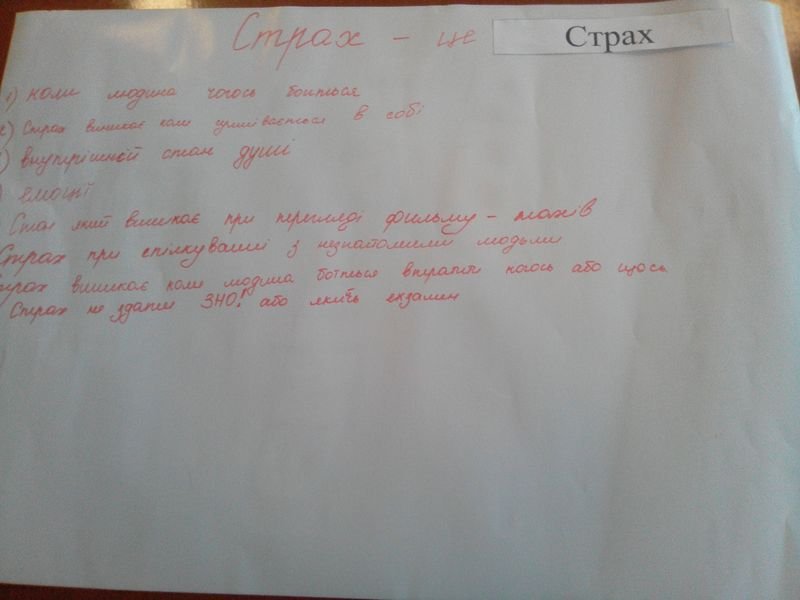 Страх - це Страх
1) коли людина чогось боїться
2) Страх виникає коли сумнівається в собі
) внутрішній стан душі
) емоції
Стан який виникає при перегляді фильму - жахів
Страх при спілкуванні з незнайомими людьми
Страх виникає коли людина боїться втратити когось або щось
Страх не здати ЗНО! або якийсь екзамен